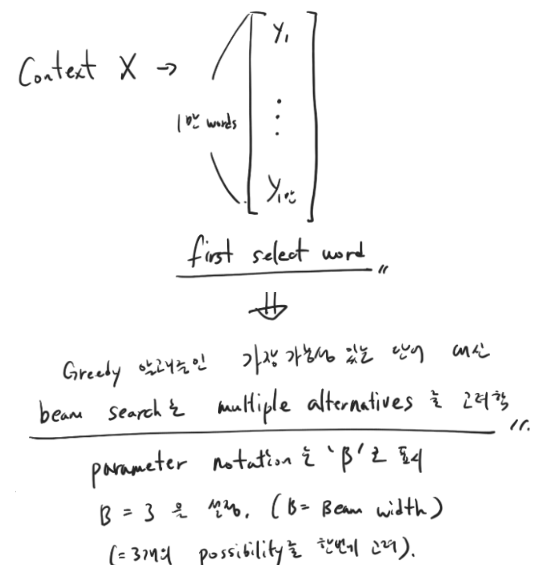 Context X →
y₁
1만 words
⋮
y₁만
first select word
⇓
Greedy 알고리즘인 가장 가능성 있는 단어 대신
beam search는 multiple alternatives를 고려함
parameter notation은 'B'로 표시
B = 3 으로 설정. (B = Beam width)
(= 3개의 possibility를 한번에 고려).